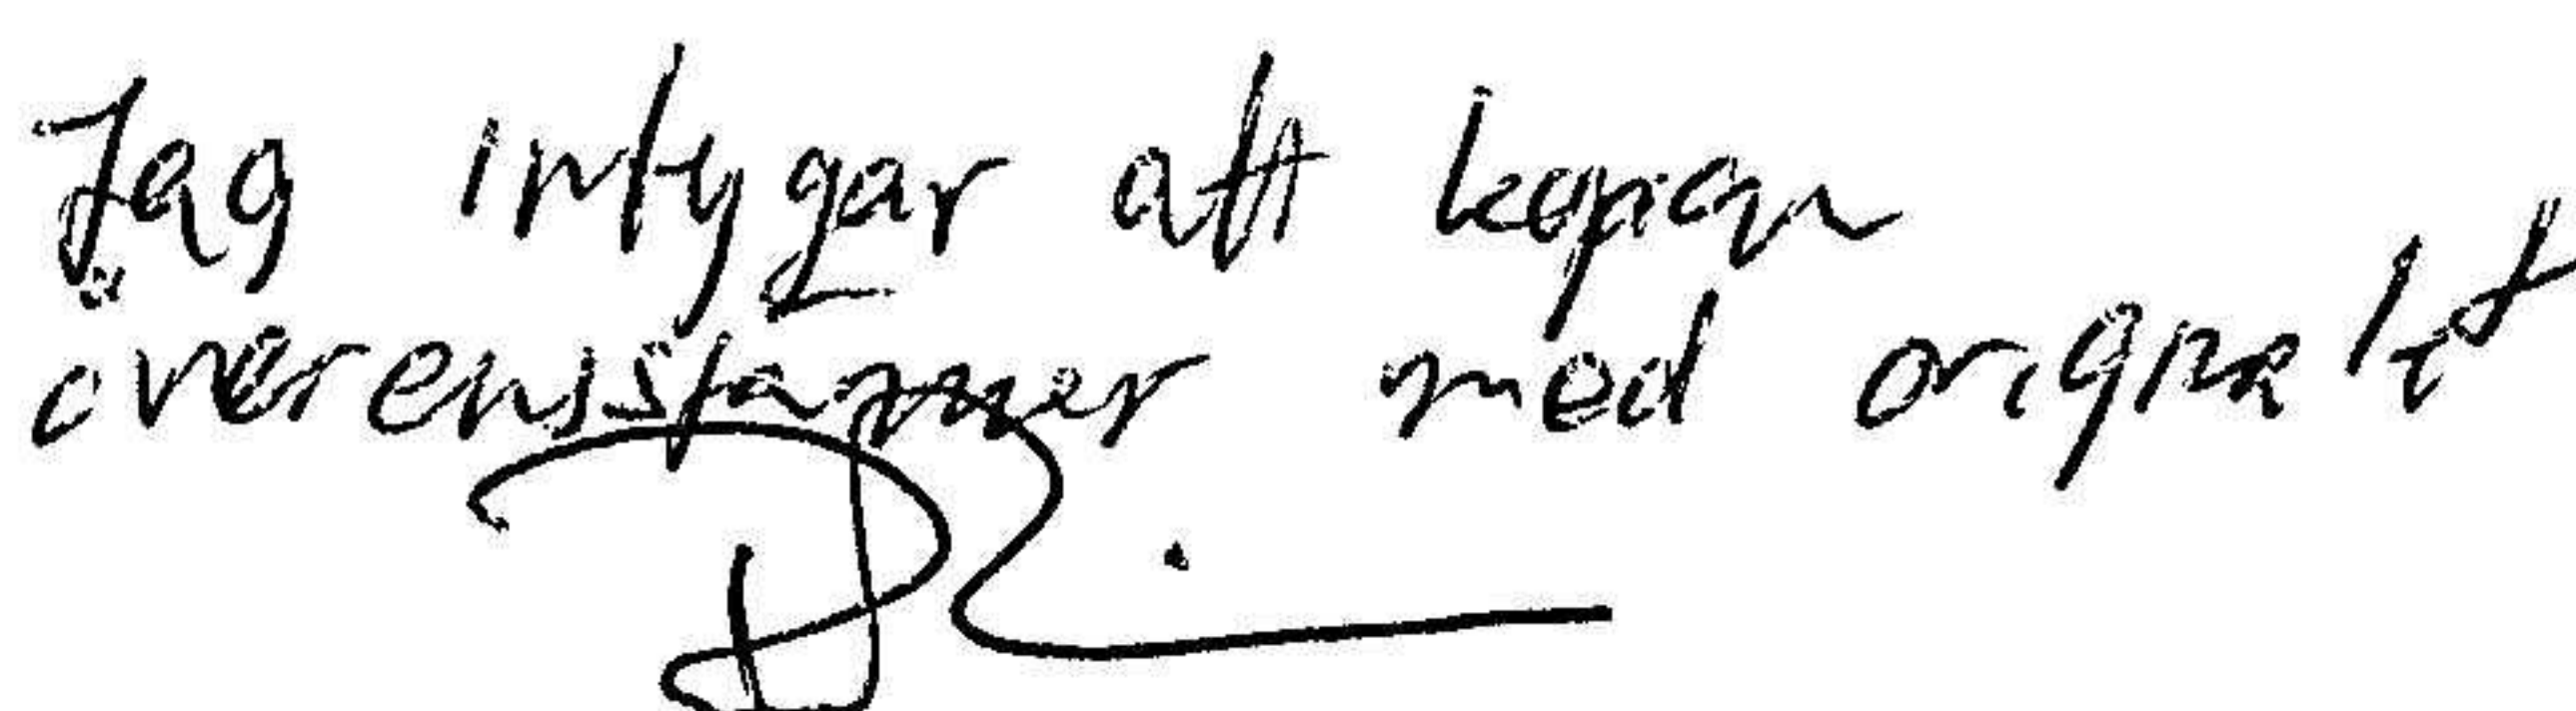 Jag intygar att kopian
överenstämmer med originalet